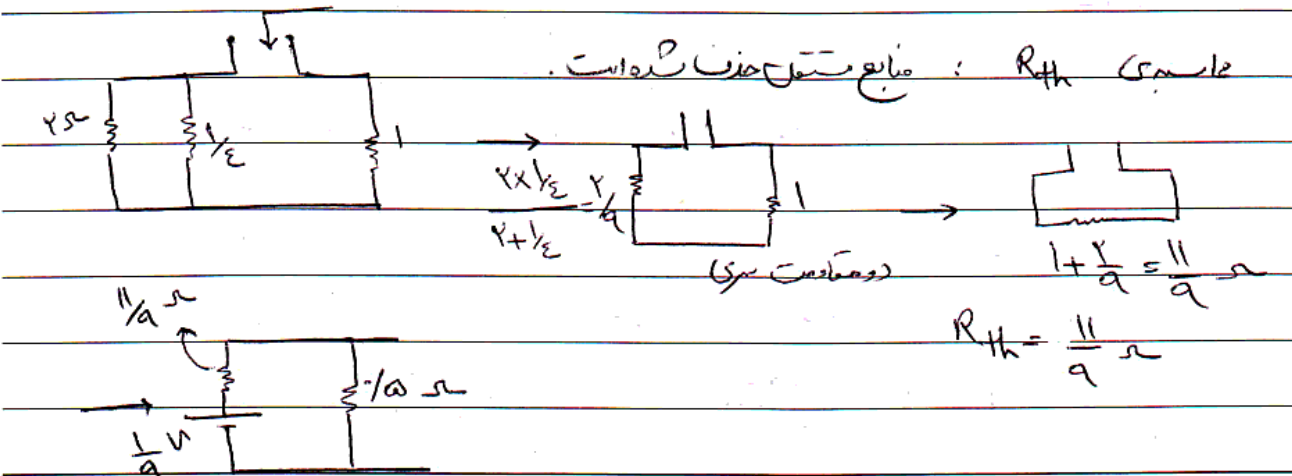 محاسبه‌ی Rth : منابع مستقل حذف شده است.
۲Ω ۱/٤ ۱
۲×۱/٤ / ۲+۱/٤ = ۲/۹ ۱
(دو مقاومت سری)
۱+۲/۹ = ۱۱/۹ Ω
Rth = ۱۱/۹ Ω
۱۱/۹ Ω
۰/۵ Ω
۱/۹ V